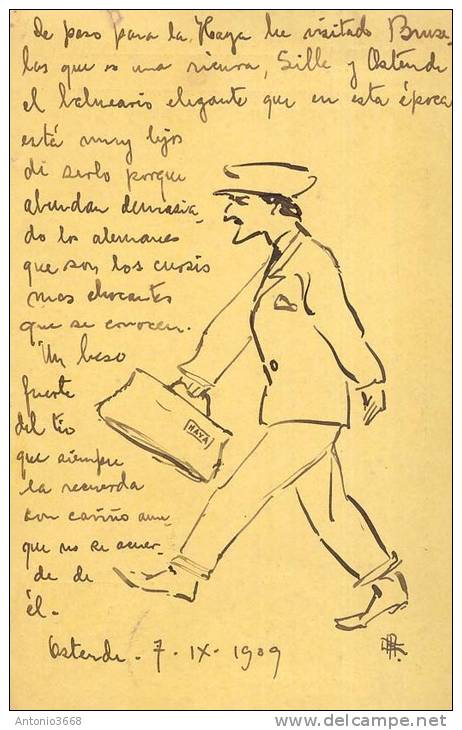 De paso para la Haya he visitado Bruse-
las que es una ricura, Lille y Ostende
el balneario elegante que en esta época
está muy lejos
de serlo porque
abundan demasia-
do los alemanes
que son los cursis
mas chocantes
que se conocen.
Un beso
fuerte
del tio
que siempre
la recuerda
con cariño aun-
que no se acuer-
de de
él.-
HAYA
Ostende - 7 - IX - 1909
Antonio3668
©delcampe.net